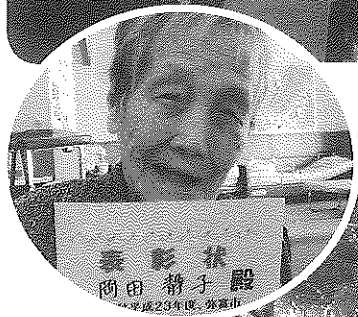 表彰状
岡田 静子 殿
平成23年度 弥富市